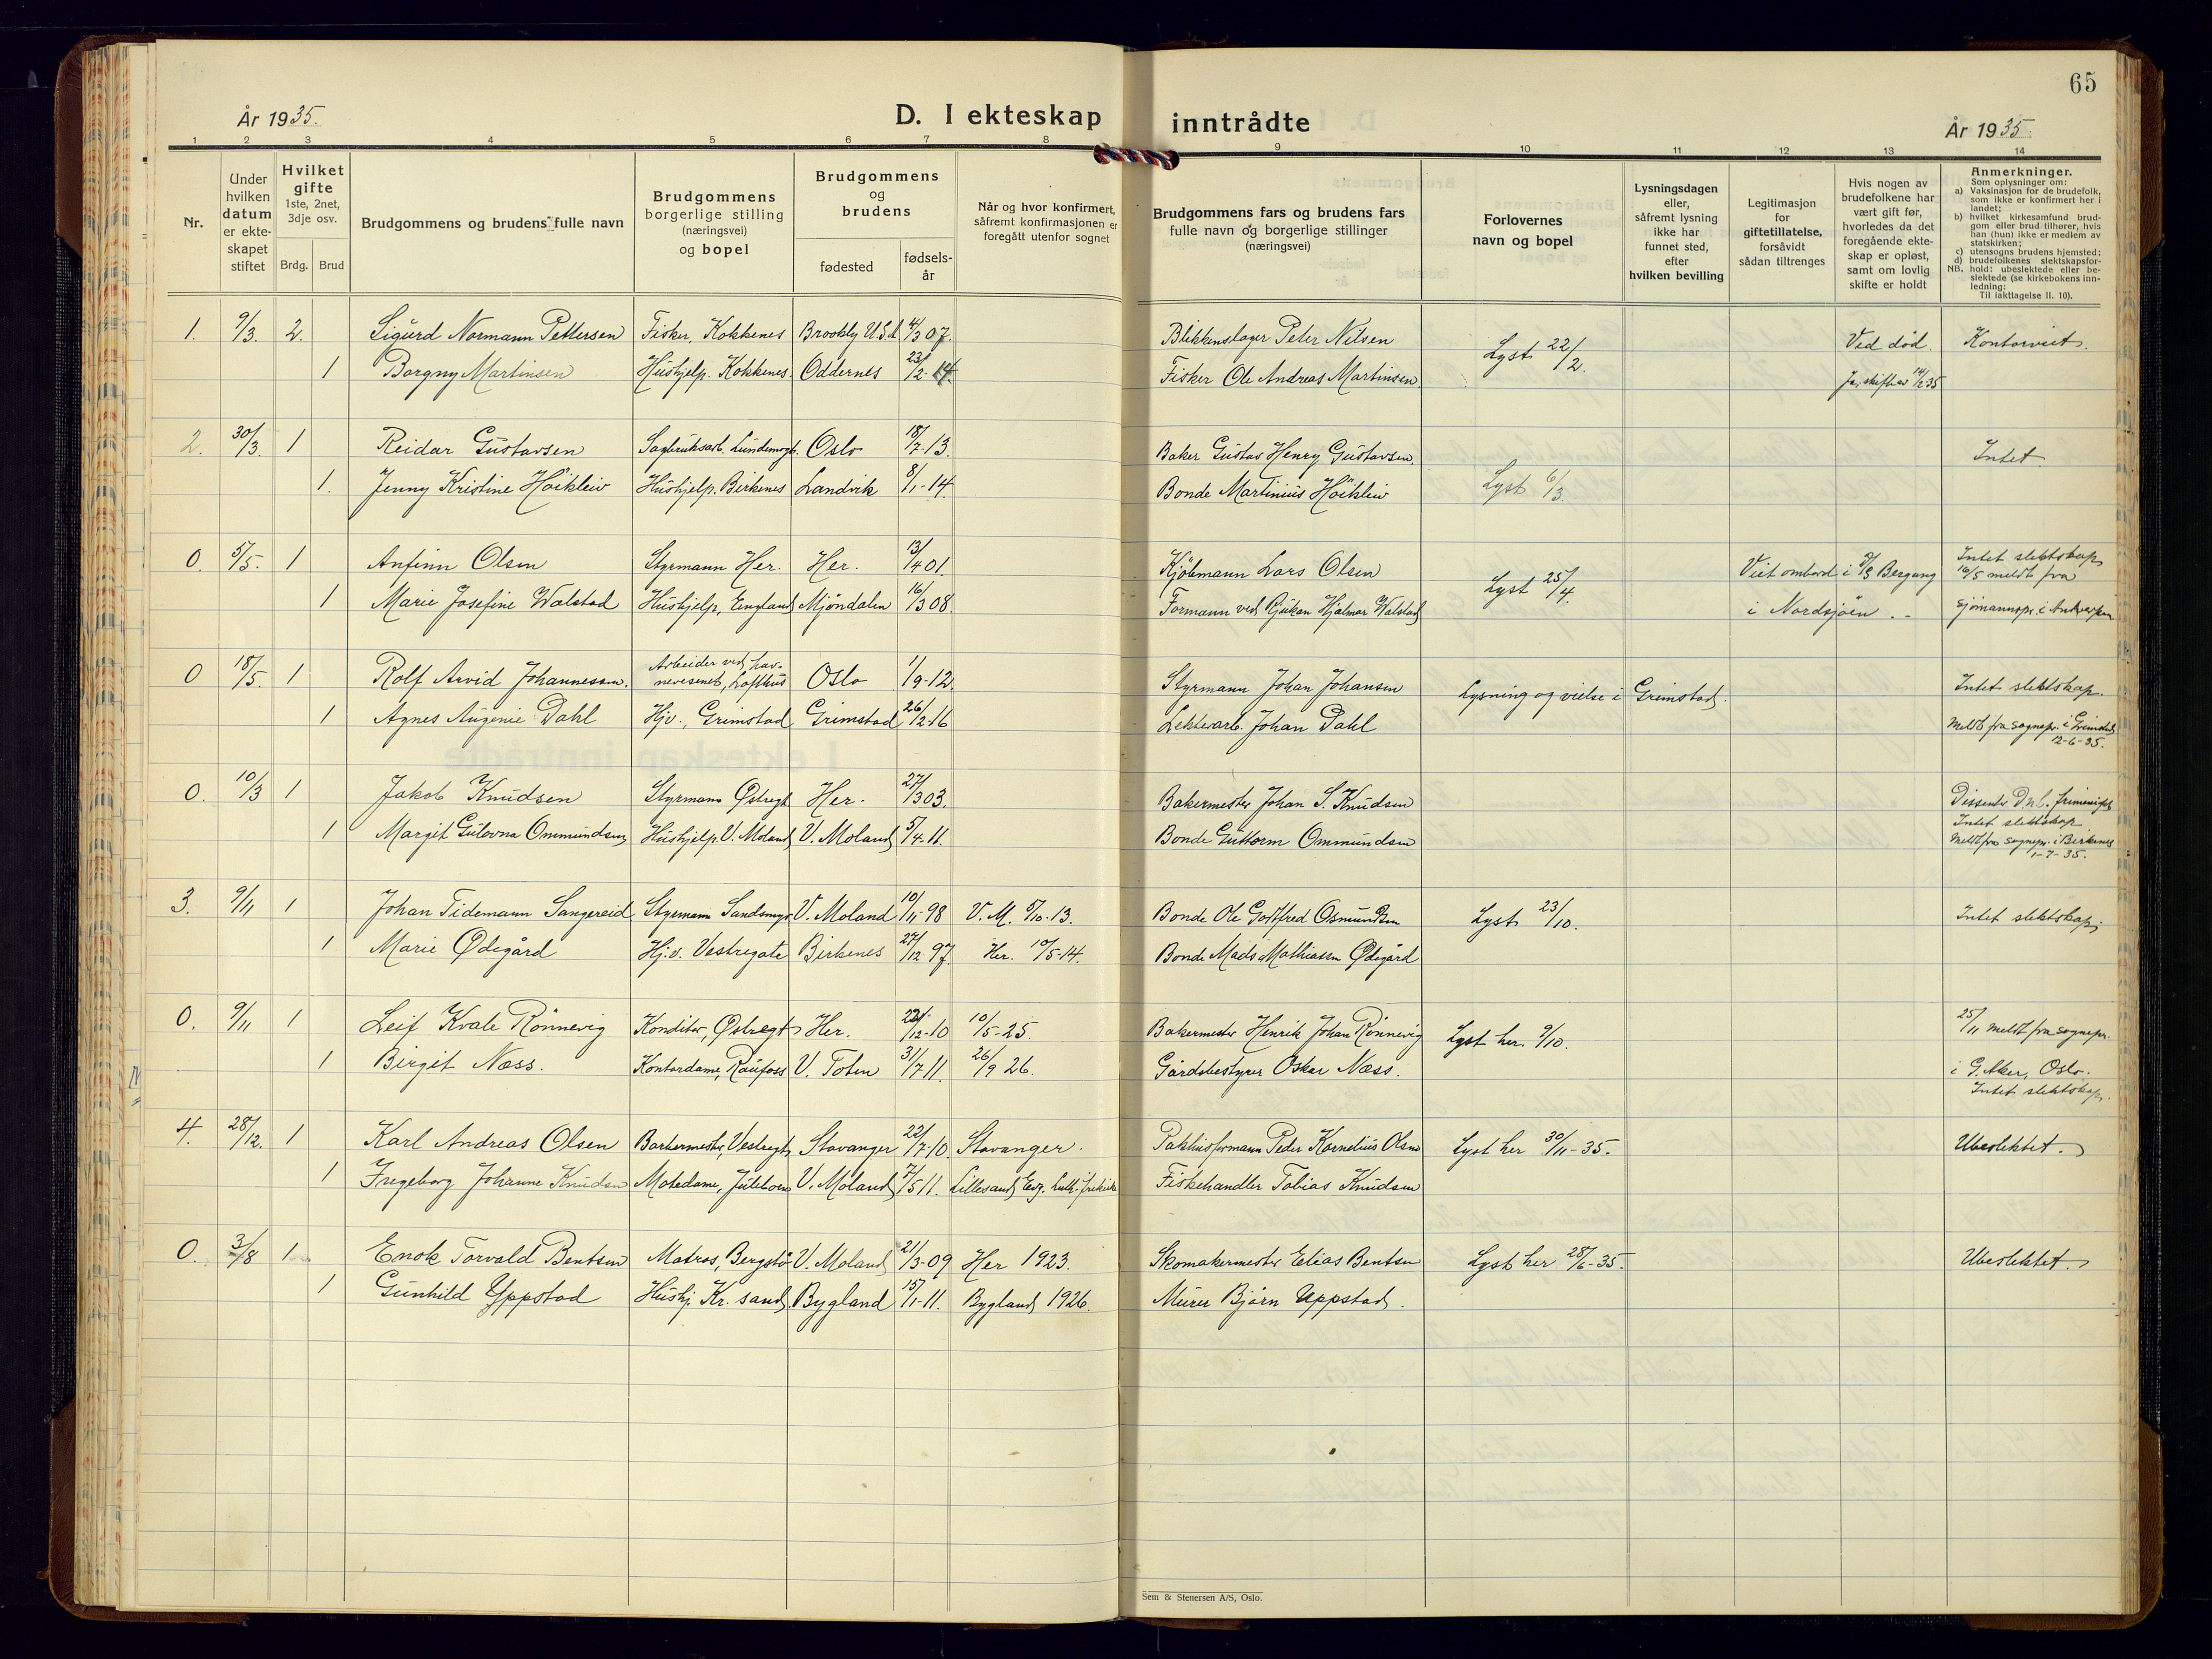 65
År 1935.
D. I ekteskap inntrådte
År 1935.
1 2 3 4 5 6 7 8 9 10 11 12 13 14
Nr.
Under hvilken datum er ekte-skapet stiftet
Hvilket gifte 1ste, 2net, 3dje osv.
Brdg. Brud
Brudgommens og brudens fulle navn
Brudgommens borgerlige stilling (næringsvei) og bopel
Brudgommens og brudens
fødested
fødsels-år
Når og hvor konfirmert, såfremt konfirmasjonen er foregått utenfor sognet
Brudgommens fars og brudens fars fulle navn og borgerlige stillinger (næringsvei)
Forlovernes navn og bopel
Lysningsdagen eller, såfremt lysning ikke har funnet sted, efter hvilken bevilling
Legitimasjon for giftetillatelse, forsåvidt sådan tiltrenges
Hvis nogen av brudefolkene har vært gift før, hvorledes da det foregående ekte-skap er opløst, samt om lovlig skifte er holdt
Anmerkninger.
Som oplysninger om:
a) Vaksinasjon for de brudefolk, som ikke er konfirmert her i landet;
b) hvilket kirkesamfund brud-gom eller brud tilhører, hvis han (hun) ikke er medlem av statskirken;
c) utensogns brudens hjemsted;
d) brudefolkenes slektskapsfor-hold: ubeslektede eller be-slektede (se kirkebokens inn-ledning:
NB. Til iakttagelse II. 10).
1. 9/3. 2. Sigurd Normann Pettersen Fisker, Kokkenes Brookly U.S.A. 4/3 07. Blikkenslager Peter Nilsen Lyst 22/2. Ved død. Kontorviet.
1 Borgny Martinsen Hushjelp. Kokkenes. Oddernes 23/2-14. Fisker Ole Andreas Martinsen Ja, skiftear 14/2 35
2. 30/3. 1 Reidar Gustavsen Sagbruksarb. Oslo 18/7-13. Baker Gustav Henry Gustavsen. Intet
1. Jenny Kristine Höikleiv Hushjelp. Birkenes Landvik 8/1-14. Bonde Martinius Höikleiv Lyst 6/3.
0. 5/5. 1 Anfinn Olsen Styrmann Her. Her. 13/4 01. Kjöbmann Lars Olsen Lyst 25/4. Viet ombord i D/S Bergang Intet slektskap
16/5 meldt fra
1 Marie Josefine Walstad Hushjelp, England Mjöndalen 16/3 08. Formann ved Rjukan Hjalmar Walstad i Nordsjöen. - Sjömannspr. i Antwerpen
0 18/5. 1 Rolf Arvid Johannessen. Arbeider ved hav-nevesenet, Lofthus Oslo 1/9-12. Styrmann Johan Johansen Lysning og vielse i Grimstad. Intet slektskap.
1 Agnes Augenie Dahl Hjv., Grimstad Grimstad 26/12-16 Johan Dahl Meldt fra sognepr. i Grimstad
12-6-35.
0. 10/3 1 Jakob Knudsen Styrmann Østregt Her. 27/3 03. Bakermester Johan S. Knudsen Dissenter
Intet slektskap
1 Margit Gulovna Ommundsen Hushjelp. V. Moland V. Moland 5/4-11. Bonde Guttorm Ommundsen Meldt fra sognepr. i Birkenes
1-7-35.
3. 9/11 1 Johan Tidemann Sangereid Styrmann Sandsmyr V. Moland 10/11-98 V. M. 5/10-13. Bonde Ole Gottfred Osmundsen Lyst 23/10. Intet slektskap.
1 Marie Ødegård Hj.v. Vestregate Birkenes 27/12 97. Her. 10/5-14. Bonde Mads Mathiassen Ødegård
0. 9/11 1 Leif Kvale Rönnevig Konditor, Østregt Her. 22/12-10 10/5-25. Bakermester Henrik Johan Rönnevig Lyst her. 9/10. 25/11 meldt fra sognepr.
1 Birgit Næss. Kontordame, Raufoss V. Toten 31/7 11. 26/9 26. Gårdsbestyrer Oskar Næss. i G. Aker, Oslo.
Intet slektskap.
4. 28/12. 1 Karl Andreas Olsen Barbermester, Vestregt Stavanger 22/7-10. Stavanger. Pakkhusformann Peder Kornelius Olsen Lyst her 30/11-35. Ubeslektet.
1 Ingeborg Johanne Knudsen Motedame, V. Moland 7/5 11. Lillesand Evg. Luth. frikirke Fiskehandler Tobias Knudsen
0. 3/8 1 Enok Torvald Bentsen Matros, Bergstö V. Moland 21/3-09 Her 1923. Skomakermester Elias Bentsen Lyst her 28/6-35. Ubeslektet.
1 Gunhild Yppstad Hushj. Kr. sand. Bygland 15/1-11. Bygland 1926. Murer Bjórn Uppstad.
Sem & Stenersen A/S, Oslo.